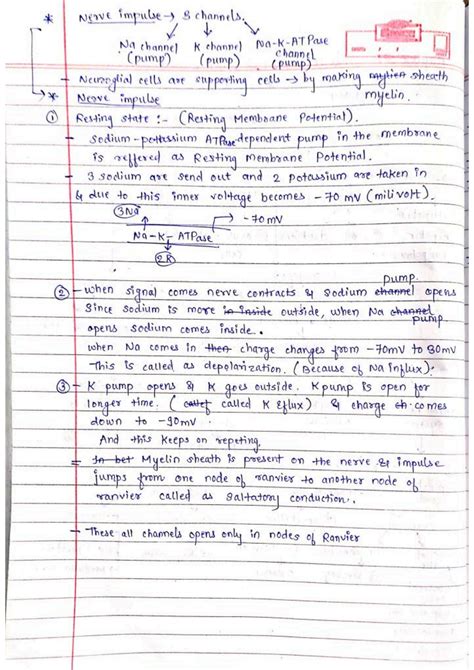 * Nerve impulse → 3 channels.
Na channel K channel Na-K-ATPase
(pump) (pump) channel
(pump)
- Neuroglial cells are supporting cells → by making myelien sheath
myelin.
* Nerve impulse
① Resting state :- (Resting Membrane Potential).
- Sodium-pottassium ATPase dependent pump in the membrane
is reffered as Resting Membrane Potential.
- 3 sodium are send out and 2 potassium are taken in
& due to this inner voltage becomes - 70 mV (milivolt).
3Na → -70mV
Na-K- ATPase
2K
pump.
② - when signal comes nerve contracts & Sodium channel opens
Since sodium is more in inside outside, when Na channel
pump.
opens sodium comes inside..
when Na comes in then charge changes from -70mV to 30mV
This is called as depolarization. (Because of Na influx).
③ - K pump opens & K goes outside. K pump is open for
longer time. (called K Eflux) & charge ch comes
down to -90mv.
And this keeps on repeting.
= In bet Myelin sheath is present on the nerve & impulse
jumps from one node of ranvier to another node of
ranvier called as Saltatory conduction..
- These all channels opens only in nodes of Ranvier